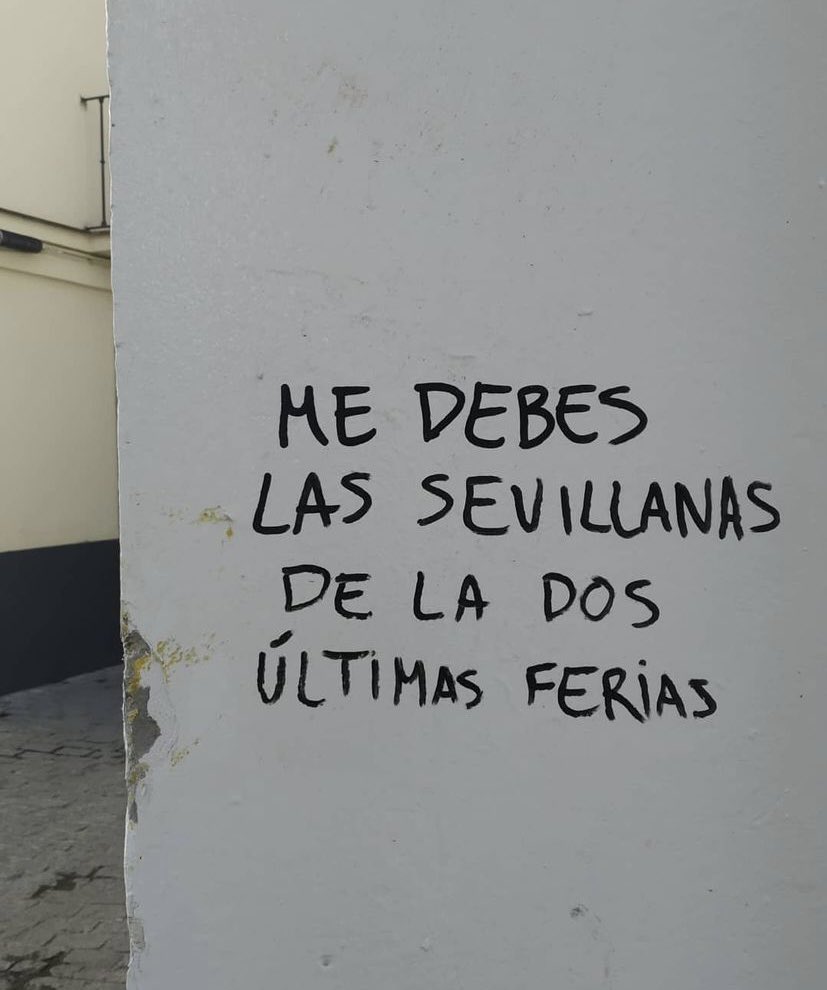 ME DEBES
LAS SEVILLANAS
DE LA DOS
ÚLTIMAS FERIAS